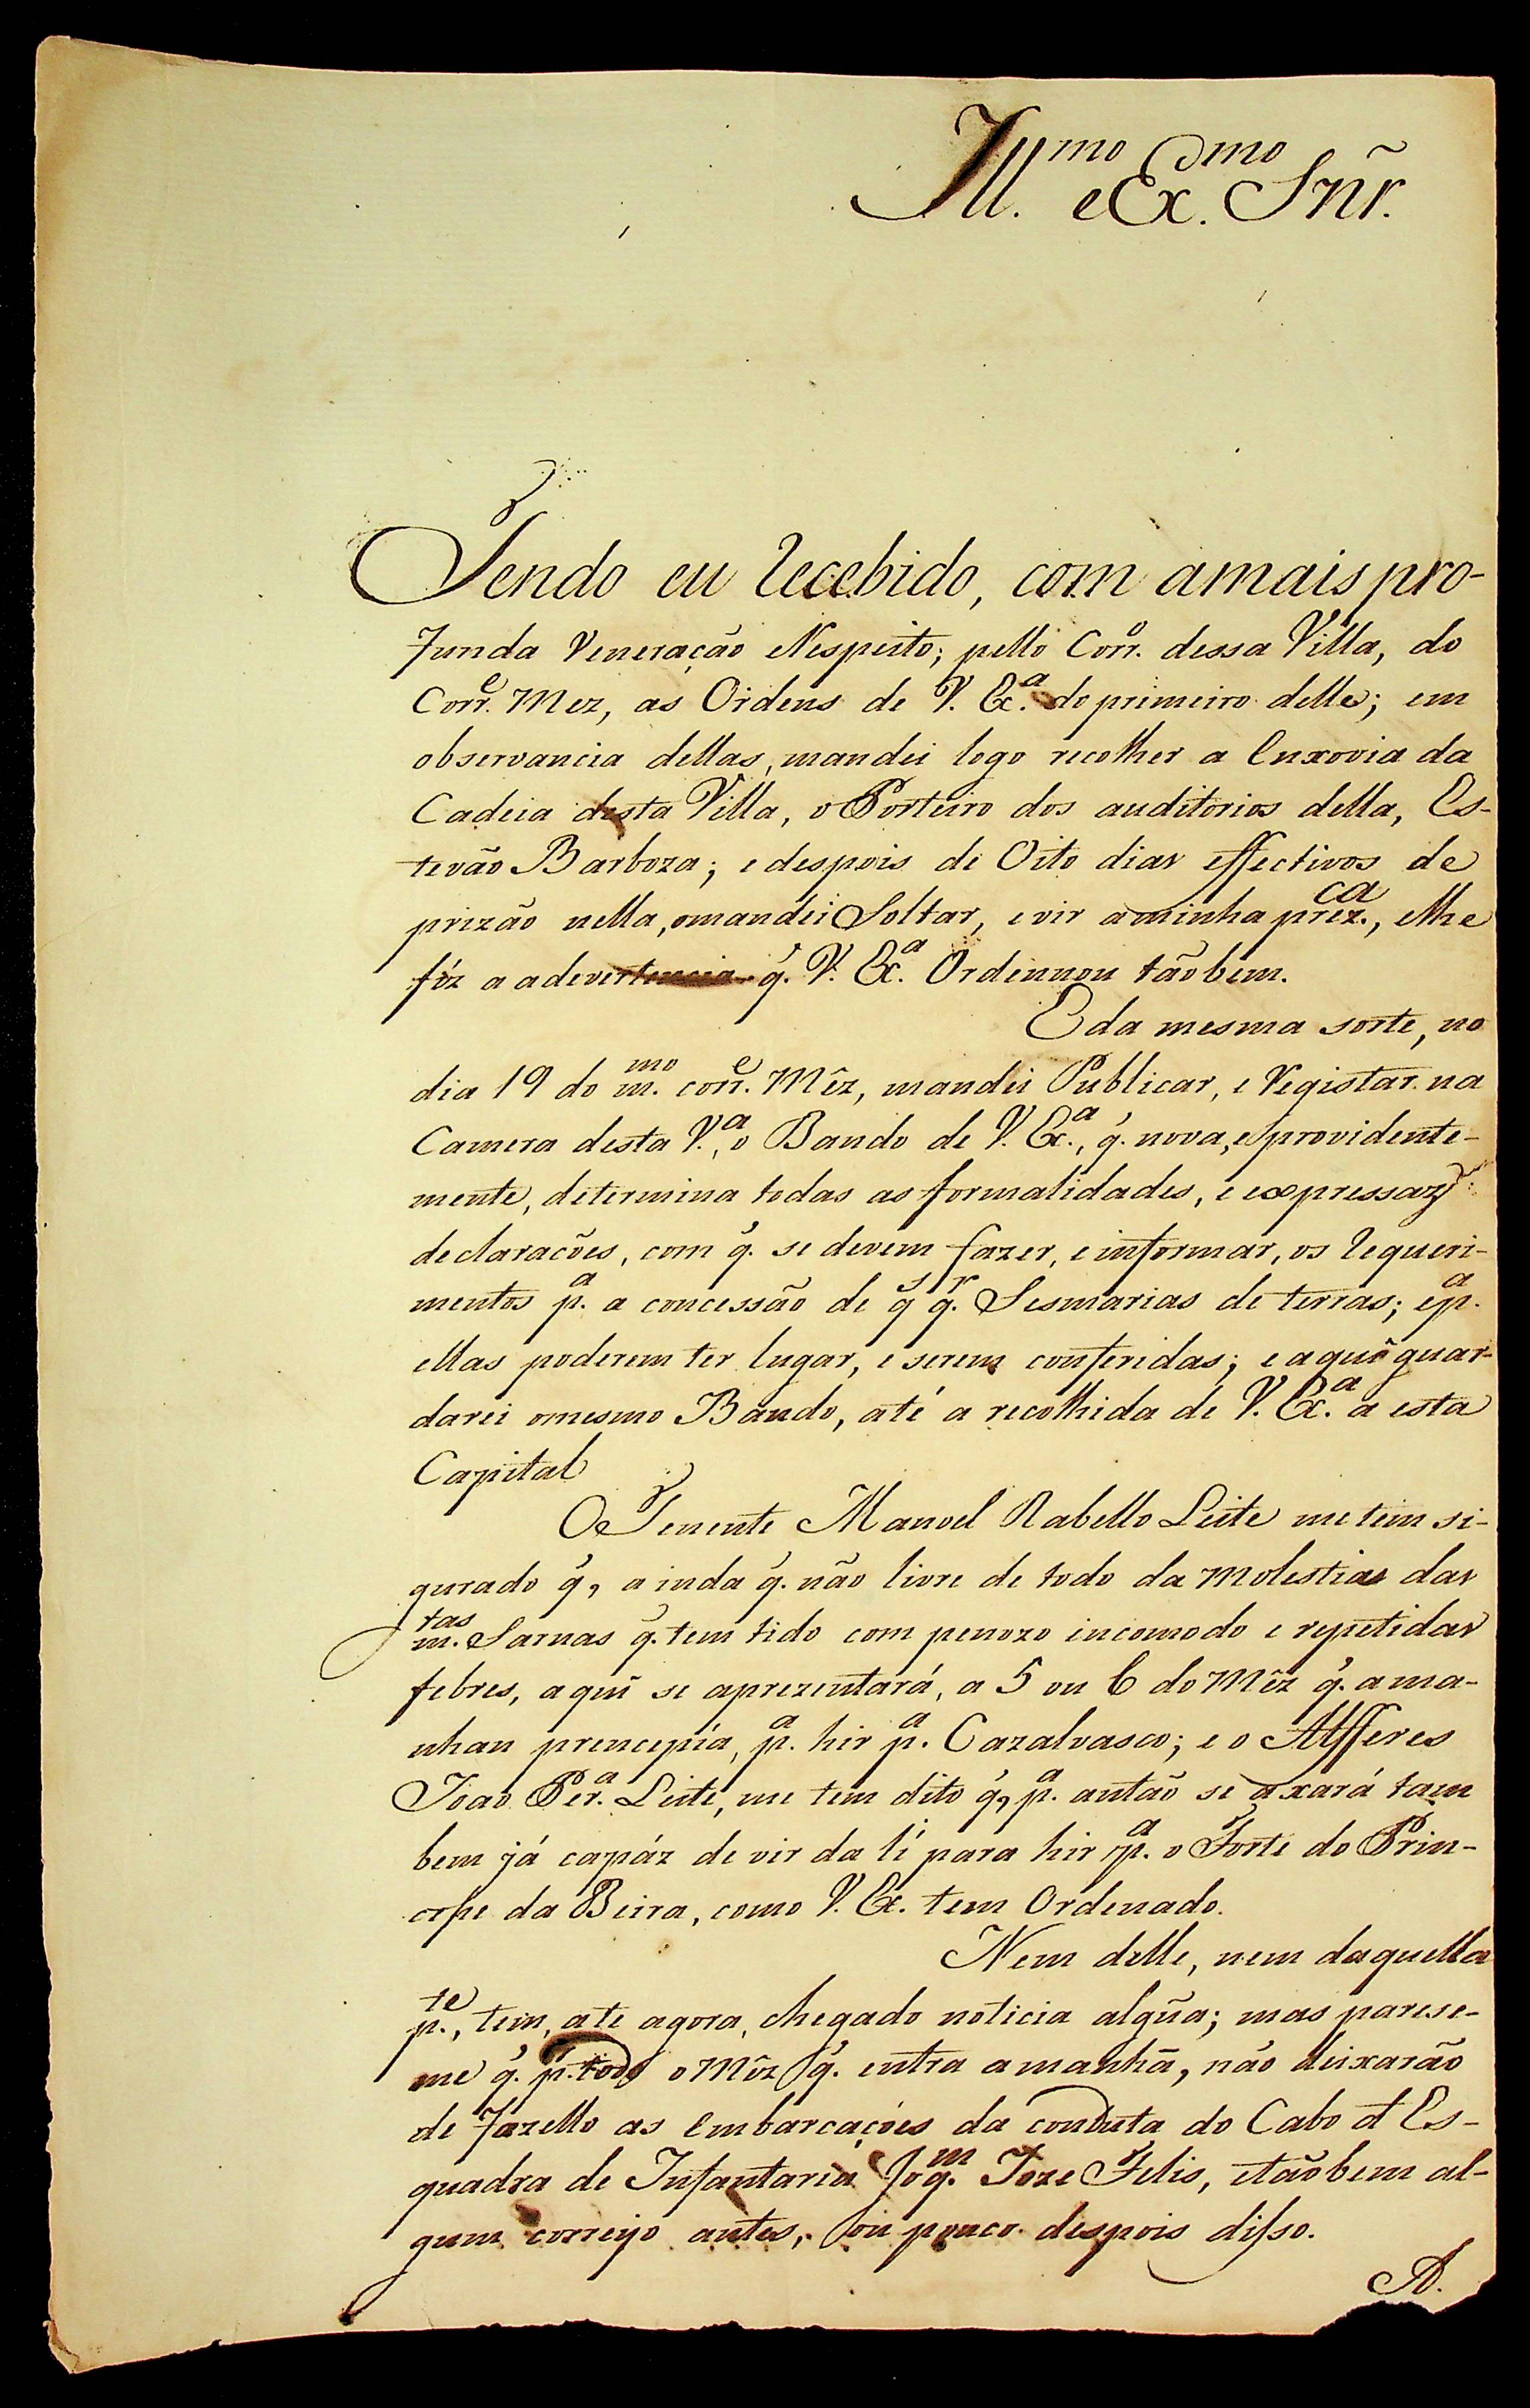 Ill.mo e Ex.mo Snr̃.
Tendo eu recebido, com amais pro-
funda Veneração eRespeito; pello Corr.o dessa Villa, do
Corr.e Mez, as Ordens de V. Ex.a do primeiro delle; em
observancia dellas, mandei logo recolher a Enxovia da
Cadeia desta Villa, o Porteiro dos auditorios della, Es-
tevão Barboza; e despois de Oito dias effectivos de
prizão nella, omandei Soltar, e vir aminha prez.ca, elhe
fiz a adevertencia q̃. V. Ex.a Ordennou tãobem.
E da mesma sorte, no
dia 19 do m.mo corr.e Mêz, mandei Publicar, e Registar na
Camera desta V.a, o Bando de V. Ex.a, q̃. nova, e providente-
mente, determina todas as formalidades, e expressas
declarações, com q̃. se devem fazer, e informar, os requeri-
mentos p.a a concessão de q.s q̃.r Sesmarias de terras; e p.a
ellas poderem ter lugar, e serem conferidas; e aqui guar-
darei omesmo Bando, até a recolhida de V. Ex.a a esta
Capital
O Tenente Manoel Rabello Leite me tem si-
gurado q̃, ainda q̃. não livre de todo da Molestia das
m.tas Sarnas q̃. tem tido com penozo incomodo e repetidas
febres, aqui se aprezentará, a 5 ou 6 do Mêz q̃. ama-
nhan prencepía, p.a hir p.a Cazalvasco; e o Alfferes
Joao Per.a Leite, me tem dito q̃, p.a antão se axará tam
bem já capáz de vir da lí para hir p.a o Forte do Prin-
cipe da Beira, como V. Ex. tem Ordenado.
Nem delle, nem daquella
p.te, tem, ate agora, chegado noticia algũa; mas parese-
me q̃. p.r todo o Mêz q̃. entra amanhã, não deixarão
de fazello as Embarcações da conduta do Cabo d'Es-
quadra de Infantaria Joq.m Joze Felis, etãobem al-
gum correyo antes, ou pouco despois disso.
A.